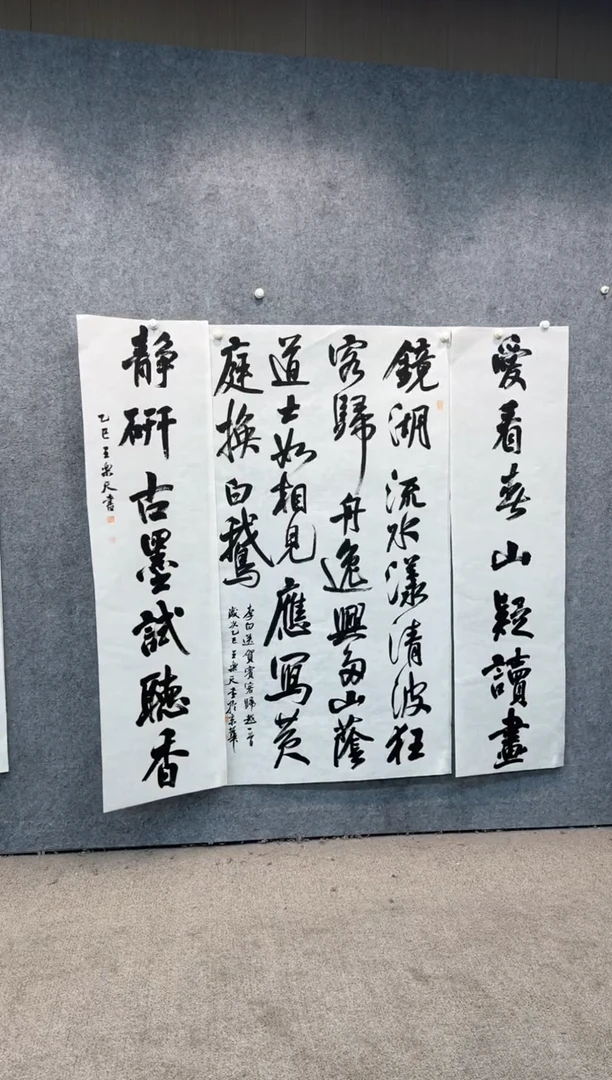 愛看春山疑讀畫
鏡湖流水漾清波狂
客歸舟逸興多山蔭
道士如相見應寫黄
庭換白鵝
李白送賀賓客歸越一首
歲次乙巳王樂天書於京華
靜研古墨試聽香
乙巳王樂天書